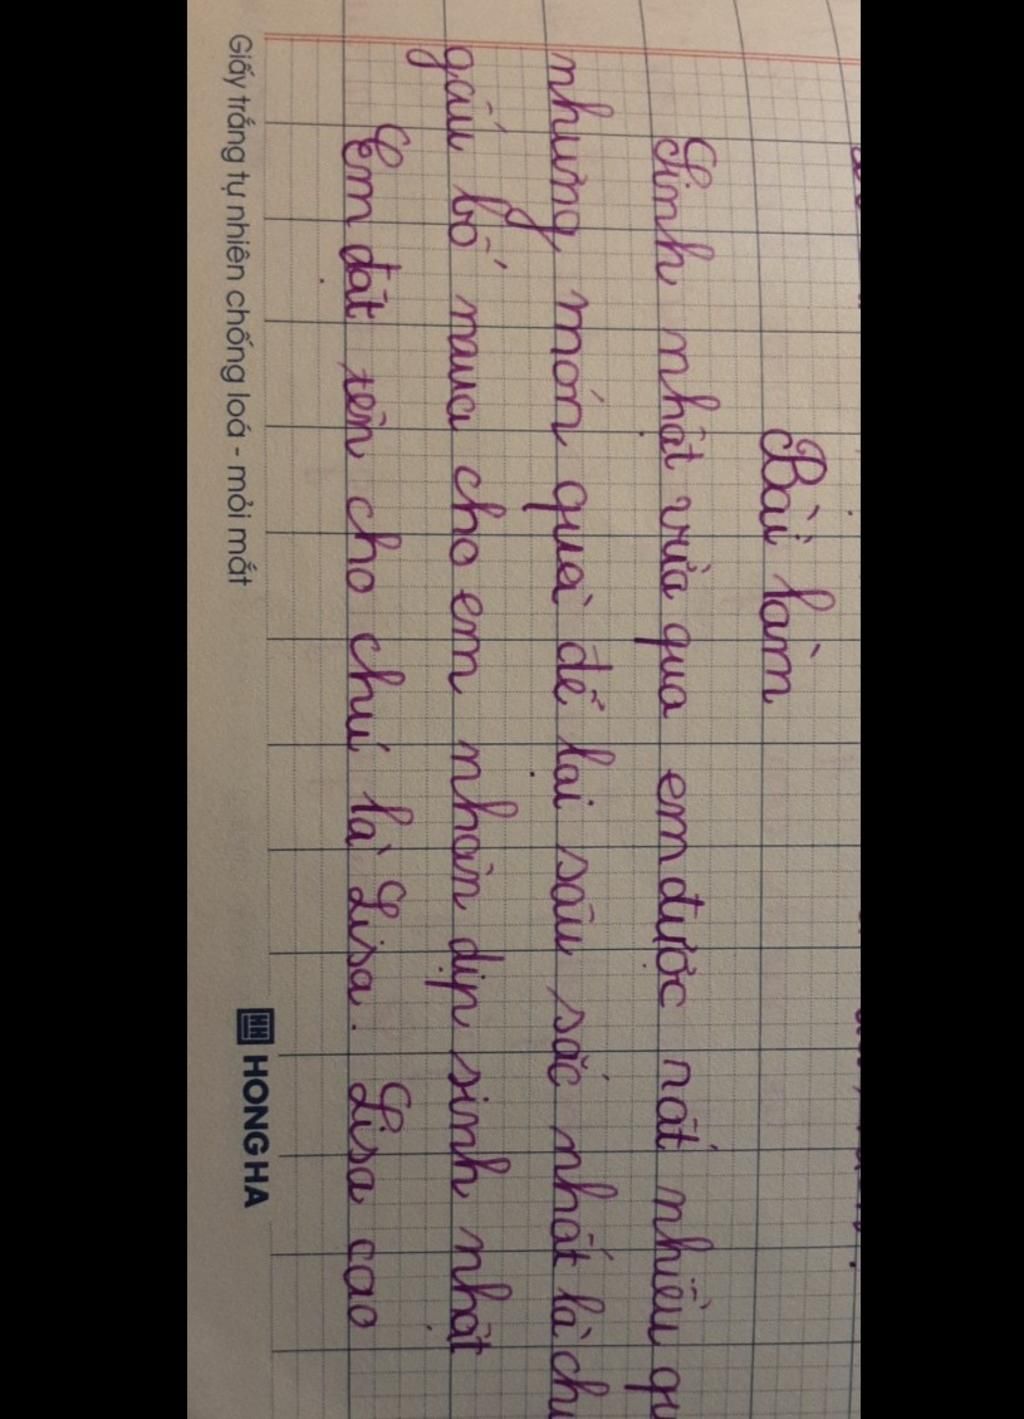 Bài làm
Sinh nhật vừa qua em được rất nhiều
nhưng món quà để lại sâu sắc nhất là
gấu bố mua cho em nhân dịp sinh nhật
Em đặt tên cho chú là Lisa. Lisa cao
Giấy trắng tự nhiên chống loá - mỏi mắt
HONG HA